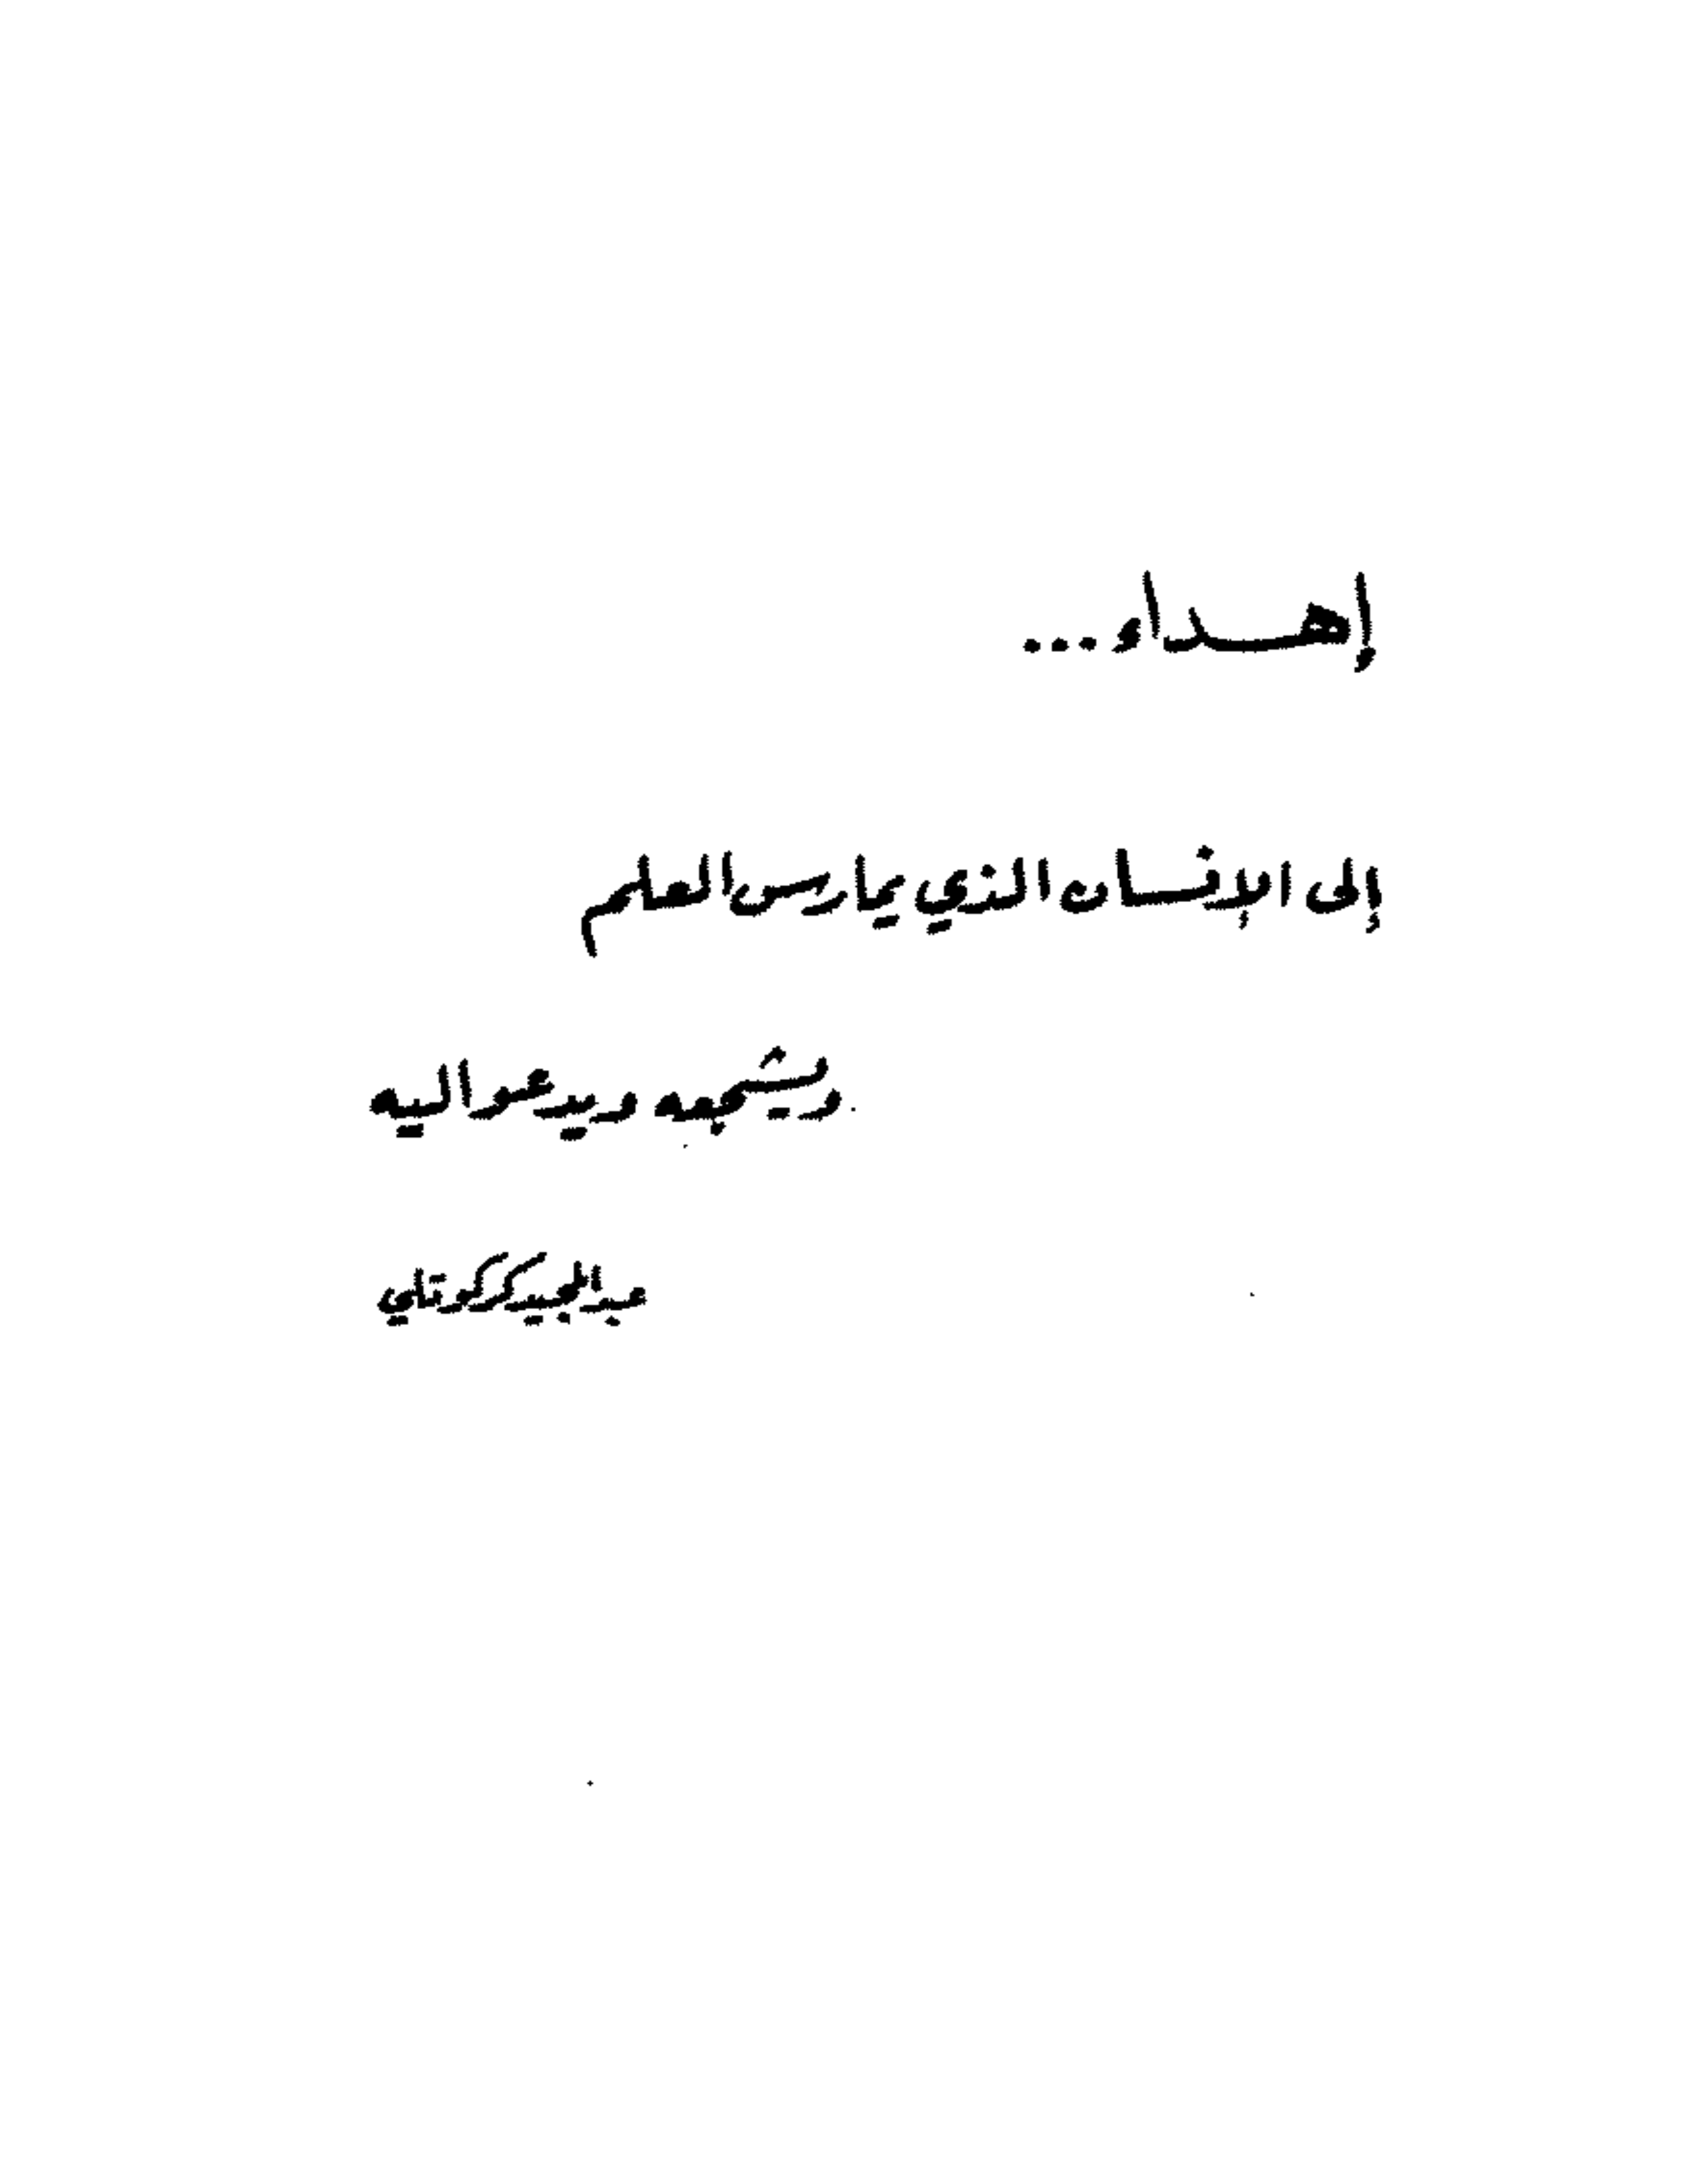 إهداء...
إلى الإنسان الذي يمارس العلم
ويشجعه ويدعو اليه
عبدالمجيد كركوتلي